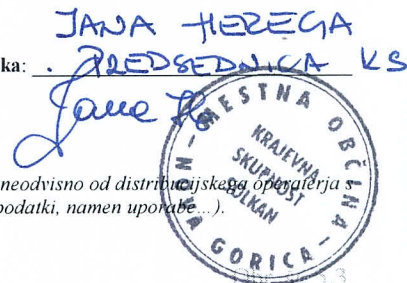 JANA HEREGA
ka: . PREDSEDNICA KS
Jana
neodvisno od distribucijskega operaterja s
podatki, namen uporabe...).
MESTNA OBČINA NOVA GORICA
KRAJEVNA
SKUPNOST
SOLKAN